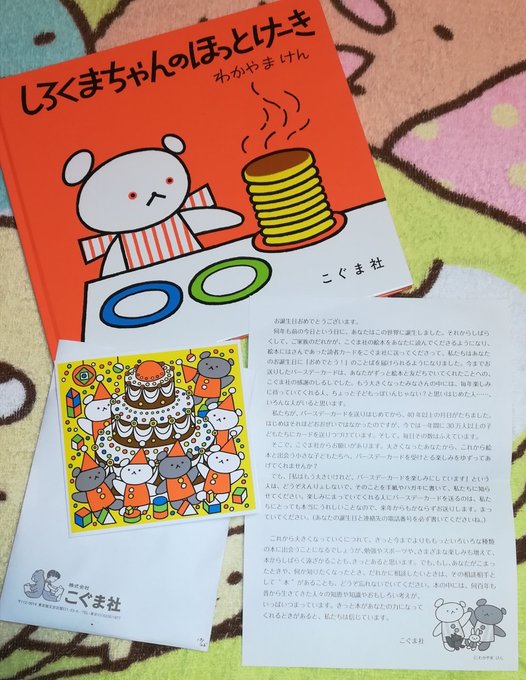 しろくまちゃんのほっとけーき
わかやま けん
こぐま社
お誕生日おめでとうございます。
何年も前の今日という日に、あなたはこの世界に誕生しました。それからしばら
くして、ご家族のだれかが、こぐま社の絵本をあなたに読んでくださるようになり、
絵本にはさんであった読者カードをこぐま社に送ってくださって、私たちはあなた
のお誕生日に「おめでとう！」のことばを届けられるようになりました。今までお
送りしたバースデーカードは、あなたがずっと絵本と友だちでいてくれたことへの、
こぐま社の感謝のしるしでした。もう大きくなったみなさんの中には、毎年楽しみ
に待っていてくれる人、ちょっと子どもっぽいんじゃない？と思いはじめた人……、
いろんな人がいると思います。
私たちが、バースデーカードを送りはじめてから、40年以上の月日がたちました。
はじめはそれほどおおぜいではなかったのですが、今では一年間に30万人以上の子
どもたちにカードを送りつづけています。そして、毎日その数はふえています。
そこで、こぐま社からお願いがあります。大きくなったあなたから、これから絵
本と出会う小さな子どもたちへ、バースデーカードを受けとる楽しみをゆずってあ
げてくれませんか？
でも、「私はもう大きいけれど、バースデーカードを楽しみにしています」という
人は、どうぞえんりょしないで、そのことを手紙やハガキに書いて、私たちに知ら
せてください。楽しみにまっていてくれる人にバースデーカードを送るのは、私た
ちにとっても本当にうれしいことなので、来年からもかならずお送りします。まっ
ていてください。(あなたの誕生日と連絡先の電話番号を必ず書いてくださいね。)
これから大きくなっていくにつれて、きっと今までよりももっといろいろな種類
の本に出会うことになるでしょうが、勉強やスポーツや、さまざまな楽しみも増えて、
本からしばらく遠ざかることも、きっとあると思います。でも、もし、あなたがこまっ
たときや、何か知りたくなったとき、だれかに相談したいときは、その相談相手と
して“本”があることも、どうぞ忘れないでいてください。本の中には、何百年も
昔から生きてきた人々の知恵や知識やおもしろい考えが、
いっぱいつまっています。きっと本があなたの力になって
くれるときがあると、私たちは信じています。
こぐま社
©わかやま けん
株式会社
こぐま社